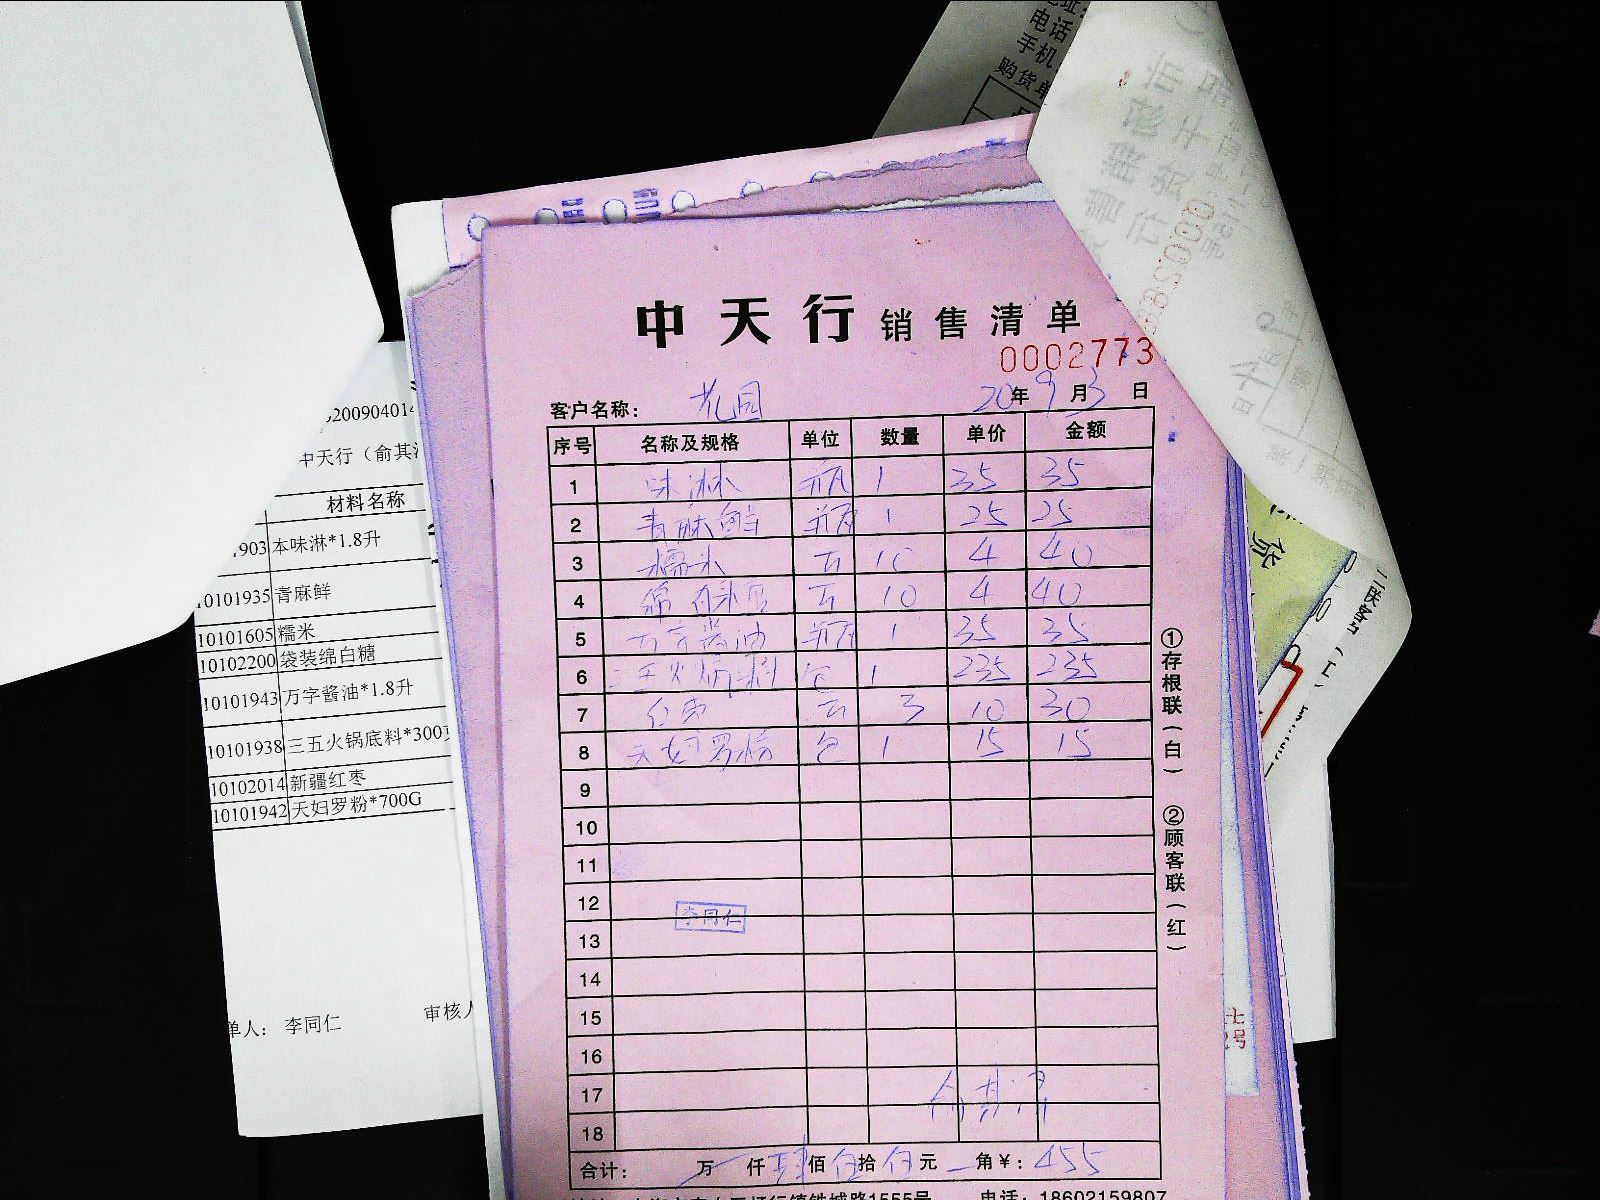 中天行 销售清单
0002773
客户名称： 花园 20年9月3日
序号 名称及规格 单位 数量 单价 金额
1 味淋 瓶 1 35 35
2 青麻鲜 瓶 1 25 25
3 糯米 斤 10 4 40
4 绵白糖 斤 10 4 40
5 万字酱油 瓶 1 35 35
6 三五火锅料 包 1 235 235
7 红枣 斤 3 10 30
8 天妇罗粉 包 1 15 15
9
10
11
12
李同仁
13
14
15
16
17
18
合计： 万 仟 肆佰伍拾伍元 角￥：455
1555号 电话：18602159807
①存根联（白） ②顾客联（红）
中天行（俞其
材料名称
903 本味淋*1.8升
10101935 青麻鲜
10101605 糯米
10102200 袋装绵白糖
10101943 万字酱油*1.8升
10101938 三五火锅底料*300
10102014 新疆红枣
10101942 天妇罗粉*700G
单人： 李同仁 审核人
电话
手机
购货单